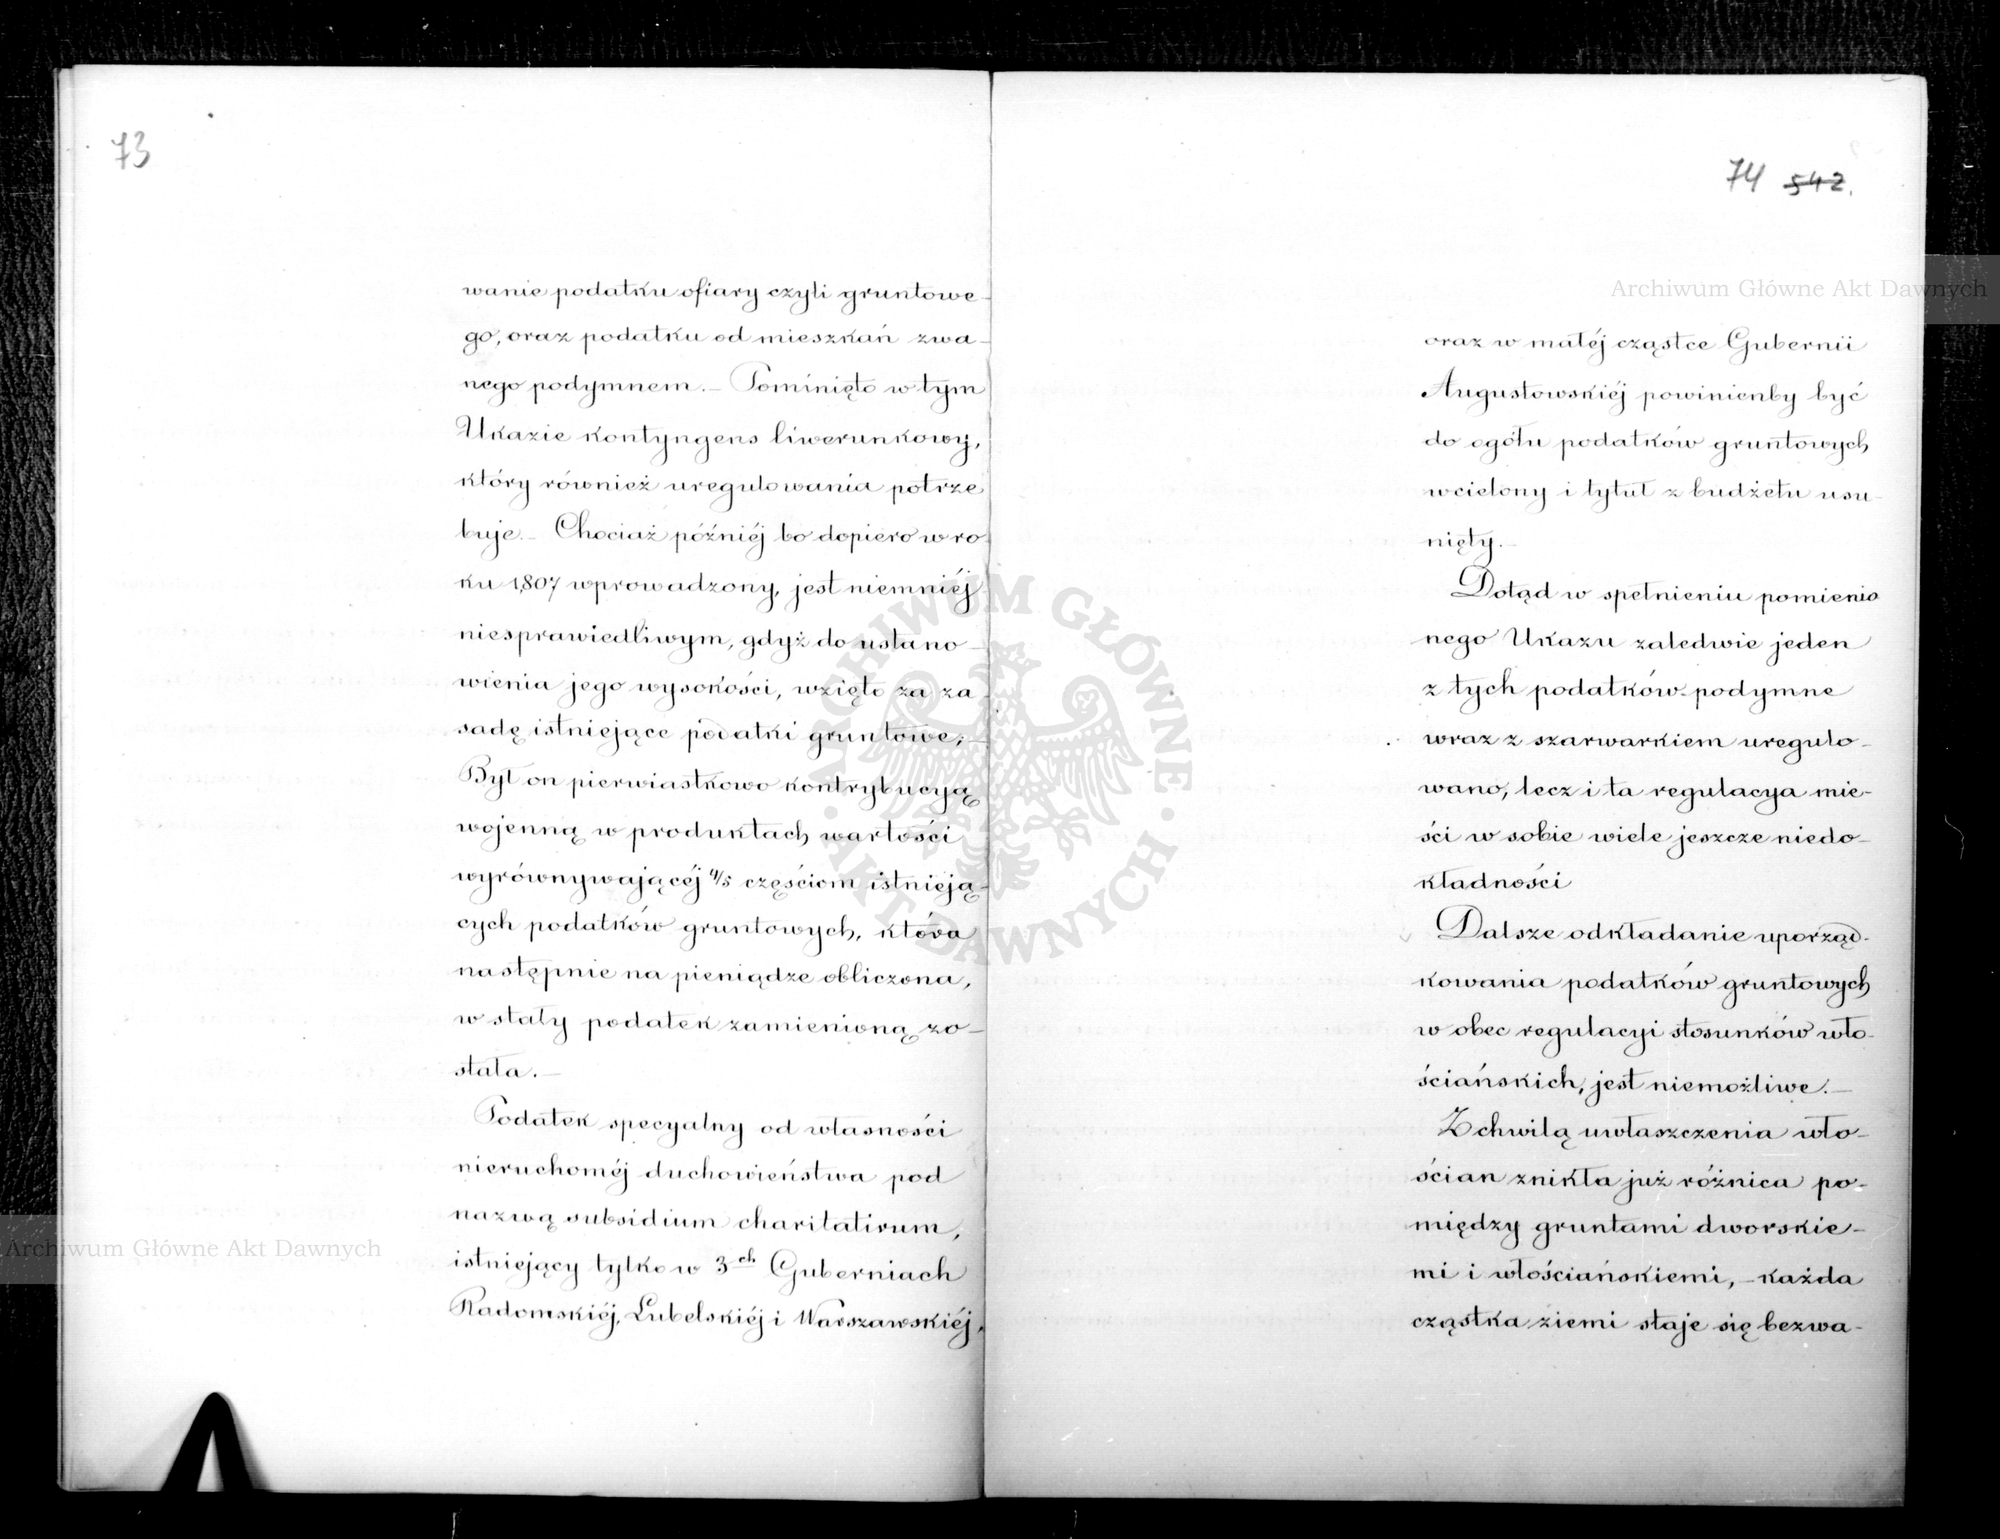 73
wanie podatku ofiary czyli gruntowe-
go, oraz podatku od mieszkań zwa-
nego podymnem.- Pominięto w tym
Ukazie kontyngens liwerunkowy,
który również uregulowania potrze
buje.- Chociaż późniéj bo dopiero w ro-
ku 1807 wprowadzony, jest niemniéj
niesprawiedliwym, gdyż do ustano-
wienia jego wysokości, wzięto za za-
sadę istniejące podatki gruntowe,-
Był on pierwiastkowo kontrybucyą
wojenną w produktach wartości
wyrównywającéj 4/5 częściom istnieją-
cych podatków gruntowych, która
następnie na pieniądze obliczona,
w stały podatek zamienioną zo-
stała.-
Podatek specyalny od własności
nieruchoméj duchowieństwa pod
nazwą subsidium charitativum,
istniejący tylko w 3ch Guberniach
Radomskiéj, Lubelskiéj i Warszawskiéj,
74 542.
oraz w małéj cząstce Gubernii
Augustowskiéj powinienby być
do ogółu podatków gruntowych
wcielony i tytuł z budżetu usu-
nięty.-
Dotąd w spełnieniu pomienio
nego Ukazu zaledwie jeden
z tych podatków-podymne
wraz z szarwarkiem uregulo-
wano, lecz i ta regulacya mie-
ści w sobie wiele jeszcze niedo-
kładności
Dalsze odkładanie uporząd-
kowania podatków gruntowych
w obec regulacyi stosunków wło-
ściańskich, jest niemożliwe.-
Z chwilą uwłaszczenia wło-
ścian znikła już różnica po-
między gruntami dworskie-
mi i włościańskiemi, - każda
cząstka ziemi staje się bezwa-
Archiwum Główne Akt Dawnych
Archiwum Główne Akt Dawnych
ARCHIWUM GŁÓWNE · AKT DAWNYCH ·